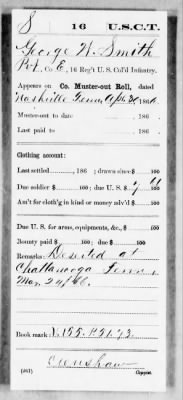 S 16 U.S.C.T.
George W. Smith
Pvt, Co. E, 16 Reg't U. S. Col'd Infantry.
Appears on Co. Muster-out Roll, dated
Nashville Tenn Apr 30, 1866.
Muster-out to date 186 .
Last paid to 186 .
Clothing account:
Last settled , 186 ; drawn since $ 100
Due soldier $ 100; due U. S. $ 100
Am't for cloth'g in kind or money adv'd $ 100
Due U. S. for arms, equipments, &c., $ 100
Bounty paid $ 100; due $ 100
Remarks: Deserted at
Chattanooga Tenn
Mar. 24/66.
Book mark:
Crenshaw
Copyist.